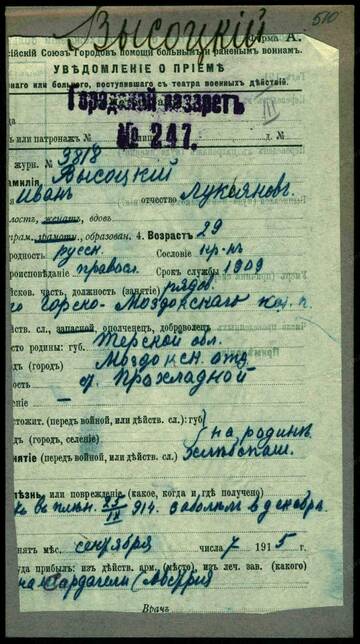 Высоцкій
510
орма А.
сійскій Союзъ Городовъ помощи больнымъ и раненымъ воинамъ.
УВѢДОМЛЕНІЕ О ПРІЕМѢ
наго или больного, поступившаго съ театра военныхъ дѣйствій.
Городской лазаретъ
№ 247.
ода
ть или патронажъ № д. №
журн. № 3818
амилія Высоцкій
Иванъ отчество Лукьяновъ
лость, женатъ, вдовъ
грам. грамотн., образован. 4. Возрастъ 29
родность русск Сословіе кр-нъ
роисповѣданіе правосл. Срокъ службы 1909
йсков. часть, должность (занятіе) рядов.
го Горско-Моздокскаго каз. п.
йств. сл., запасной, ополченецъ, доброволецъ
сто родины: губ. Терской обл.
д (городъ) Моздокск. отд.
ость ст. Прохладной
еніе —
стожит. (передъ войной, или дѣйств. сл.): губ.
д (городъ, селеніе) на родинѣ
нятіе (передъ войной, или дѣйств. сл.) хлѣбопаш.
лѣзнь, или поврежденіе (какое, когда и гдѣ получено)
въ плѣнъ 914. заболѣлъ въ декабрѣ.
нятъ мѣс. сентября числа 7 1915 г.
уда прибылъ: изъ дѣйств. арм. (мѣсто), изъ леч. зав. (какого)
Врачъ